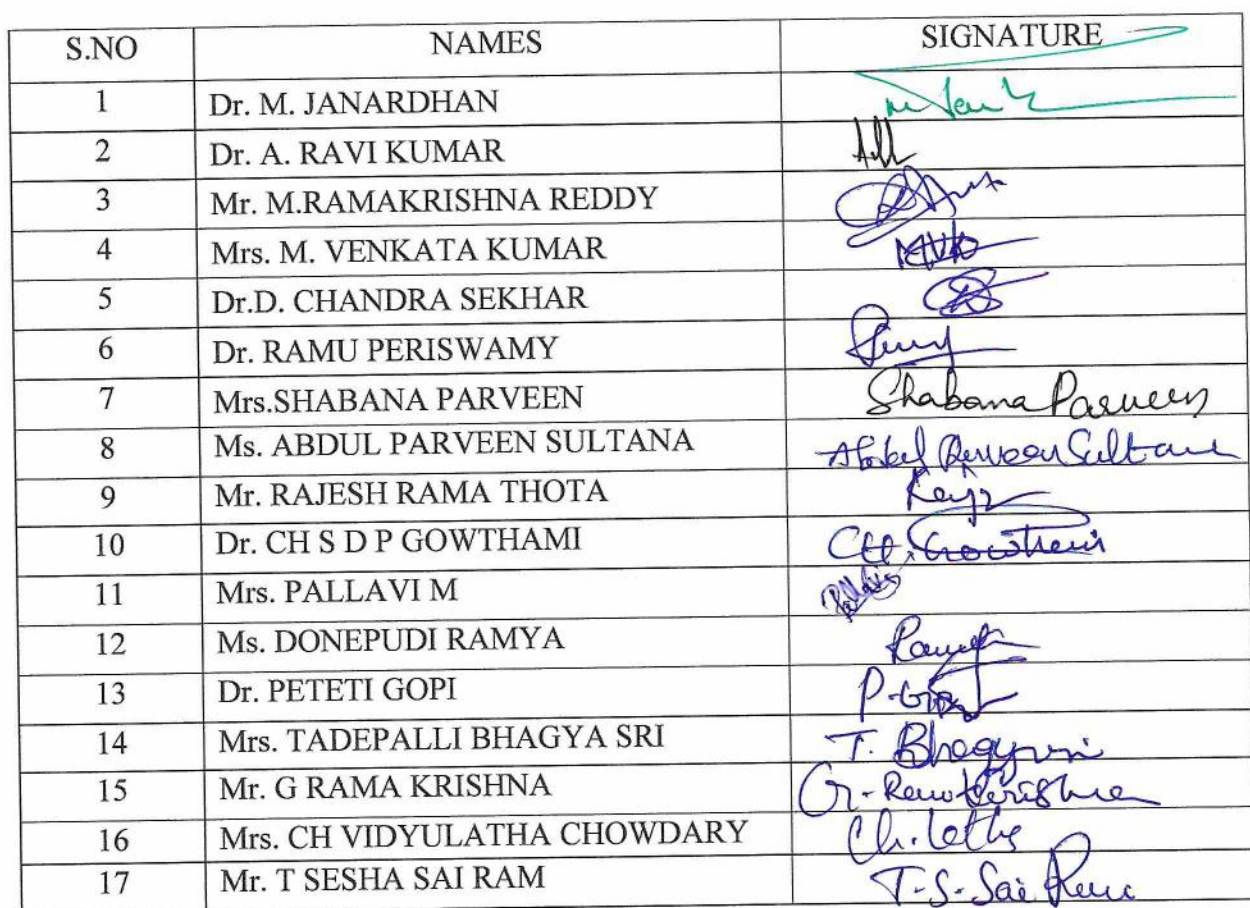 S.NO NAMES SIGNATURE
1 Dr. M. JANARDHAN
2 Dr. A. RAVI KUMAR
3 Mr. M.RAMAKRISHNA REDDY
4 Mrs. M. VENKATA KUMAR MVK
5 Dr.D. CHANDRA SEKHAR
6 Dr. RAMU PERISWAMY
7 Mrs.SHABANA PARVEEN Shabana Parveen
8 Ms. ABDUL PARVEEN SULTANA Abdul Parveen Sultana
9 Mr. RAJESH RAMA THOTA
10 Dr. CH S D P GOWTHAMI CH. Gowthami
11 Mrs. PALLAVI M Pallavi
12 Ms. DONEPUDI RAMYA Ramya
13 Dr. PETETI GOPI P. Gopi
14 Mrs. TADEPALLI BHAGYA SRI T. Bhagyasri
15 Mr. G RAMA KRISHNA G. Rama Krishna
16 Mrs. CH VIDYULATHA CHOWDARY Ch. Latha
17 Mr. T SESHA SAI RAM T.S. Sai Ram